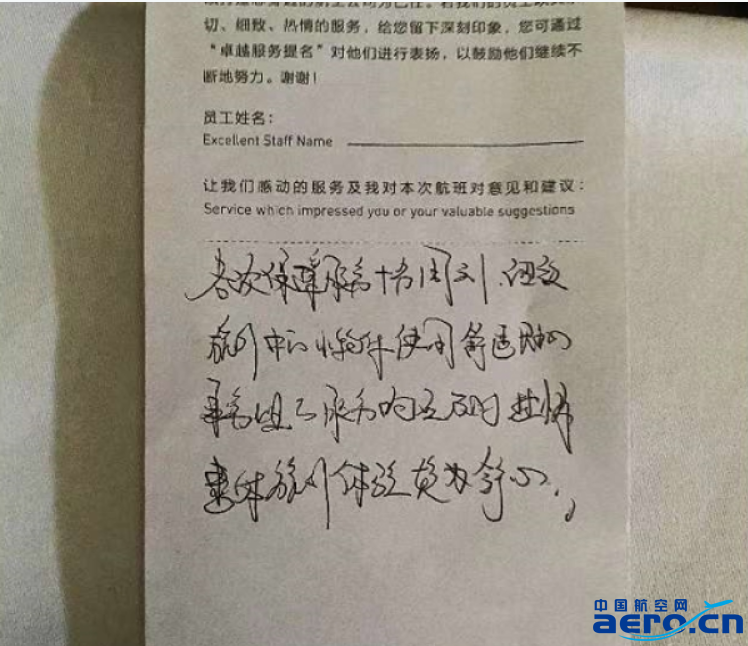 切、细致、热情的服务，给您留下深刻印象，您可通过
“卓越服务提名”对他们进行表扬，以鼓励他们继续不
断地努力。谢谢！
员工姓名：
Excellent Staff Name
让我们感动的服务及我对本次航班对意见和建议：
Service which impressed you or your valuable suggestions
本次保障服务十分周到、细致
旅行中的小物件使用舒适
乘务组服务响应及时 热情
整体旅行体验 舒心.
中国航空网
aero.cn